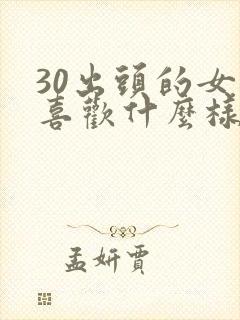 30出頭的女
喜歡什麼樣
孟妍賈